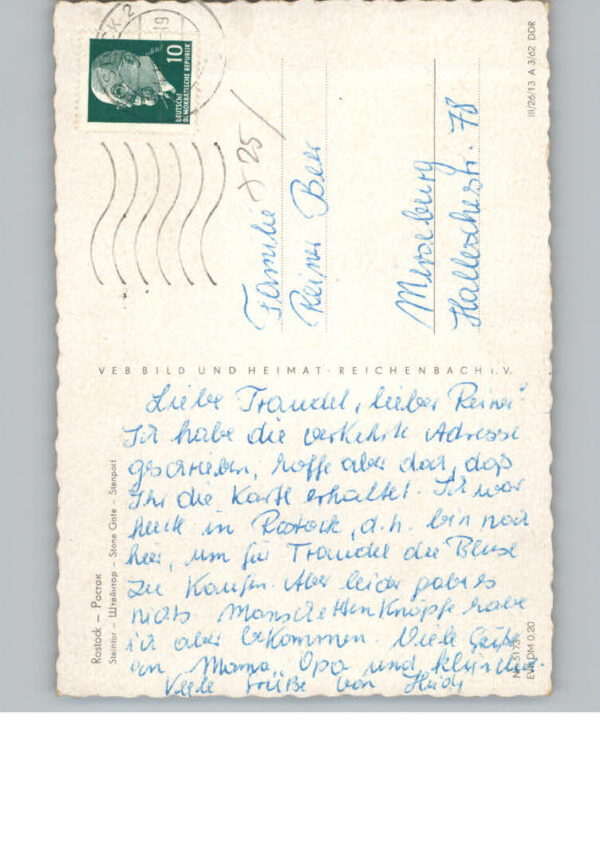 CK 2
-19
10
DEUTSCHE
DEMOKRATISCHE REPUBLIK
+25/
Familie
Reiner Beer
Merseburg
Halleschestr. 78
III/26/13 A 3/62 DDR
VEB BILD UND HEIMAT · REICHENBACH i. V.
Liebe Traudel, lieber Reiner!
Ich habe die verkehrte Adresse
geschrieben, hoffe aber doch, daß
Ihr die Karte erhaltet. Ich war
heute in Rostock, d.h. bin noch
hier, um für Traudel die Bluse
zu kaufen. Aber leider gab es
nichts. Manschettenknöpfe habe
ich aber bekommen. Viele Grüße
an Mama, Opa und
Viele Grüße von
Rostock — Росток
Steintor — Штейнтор — Stone Gate — Stenport
EVP DM 0,20